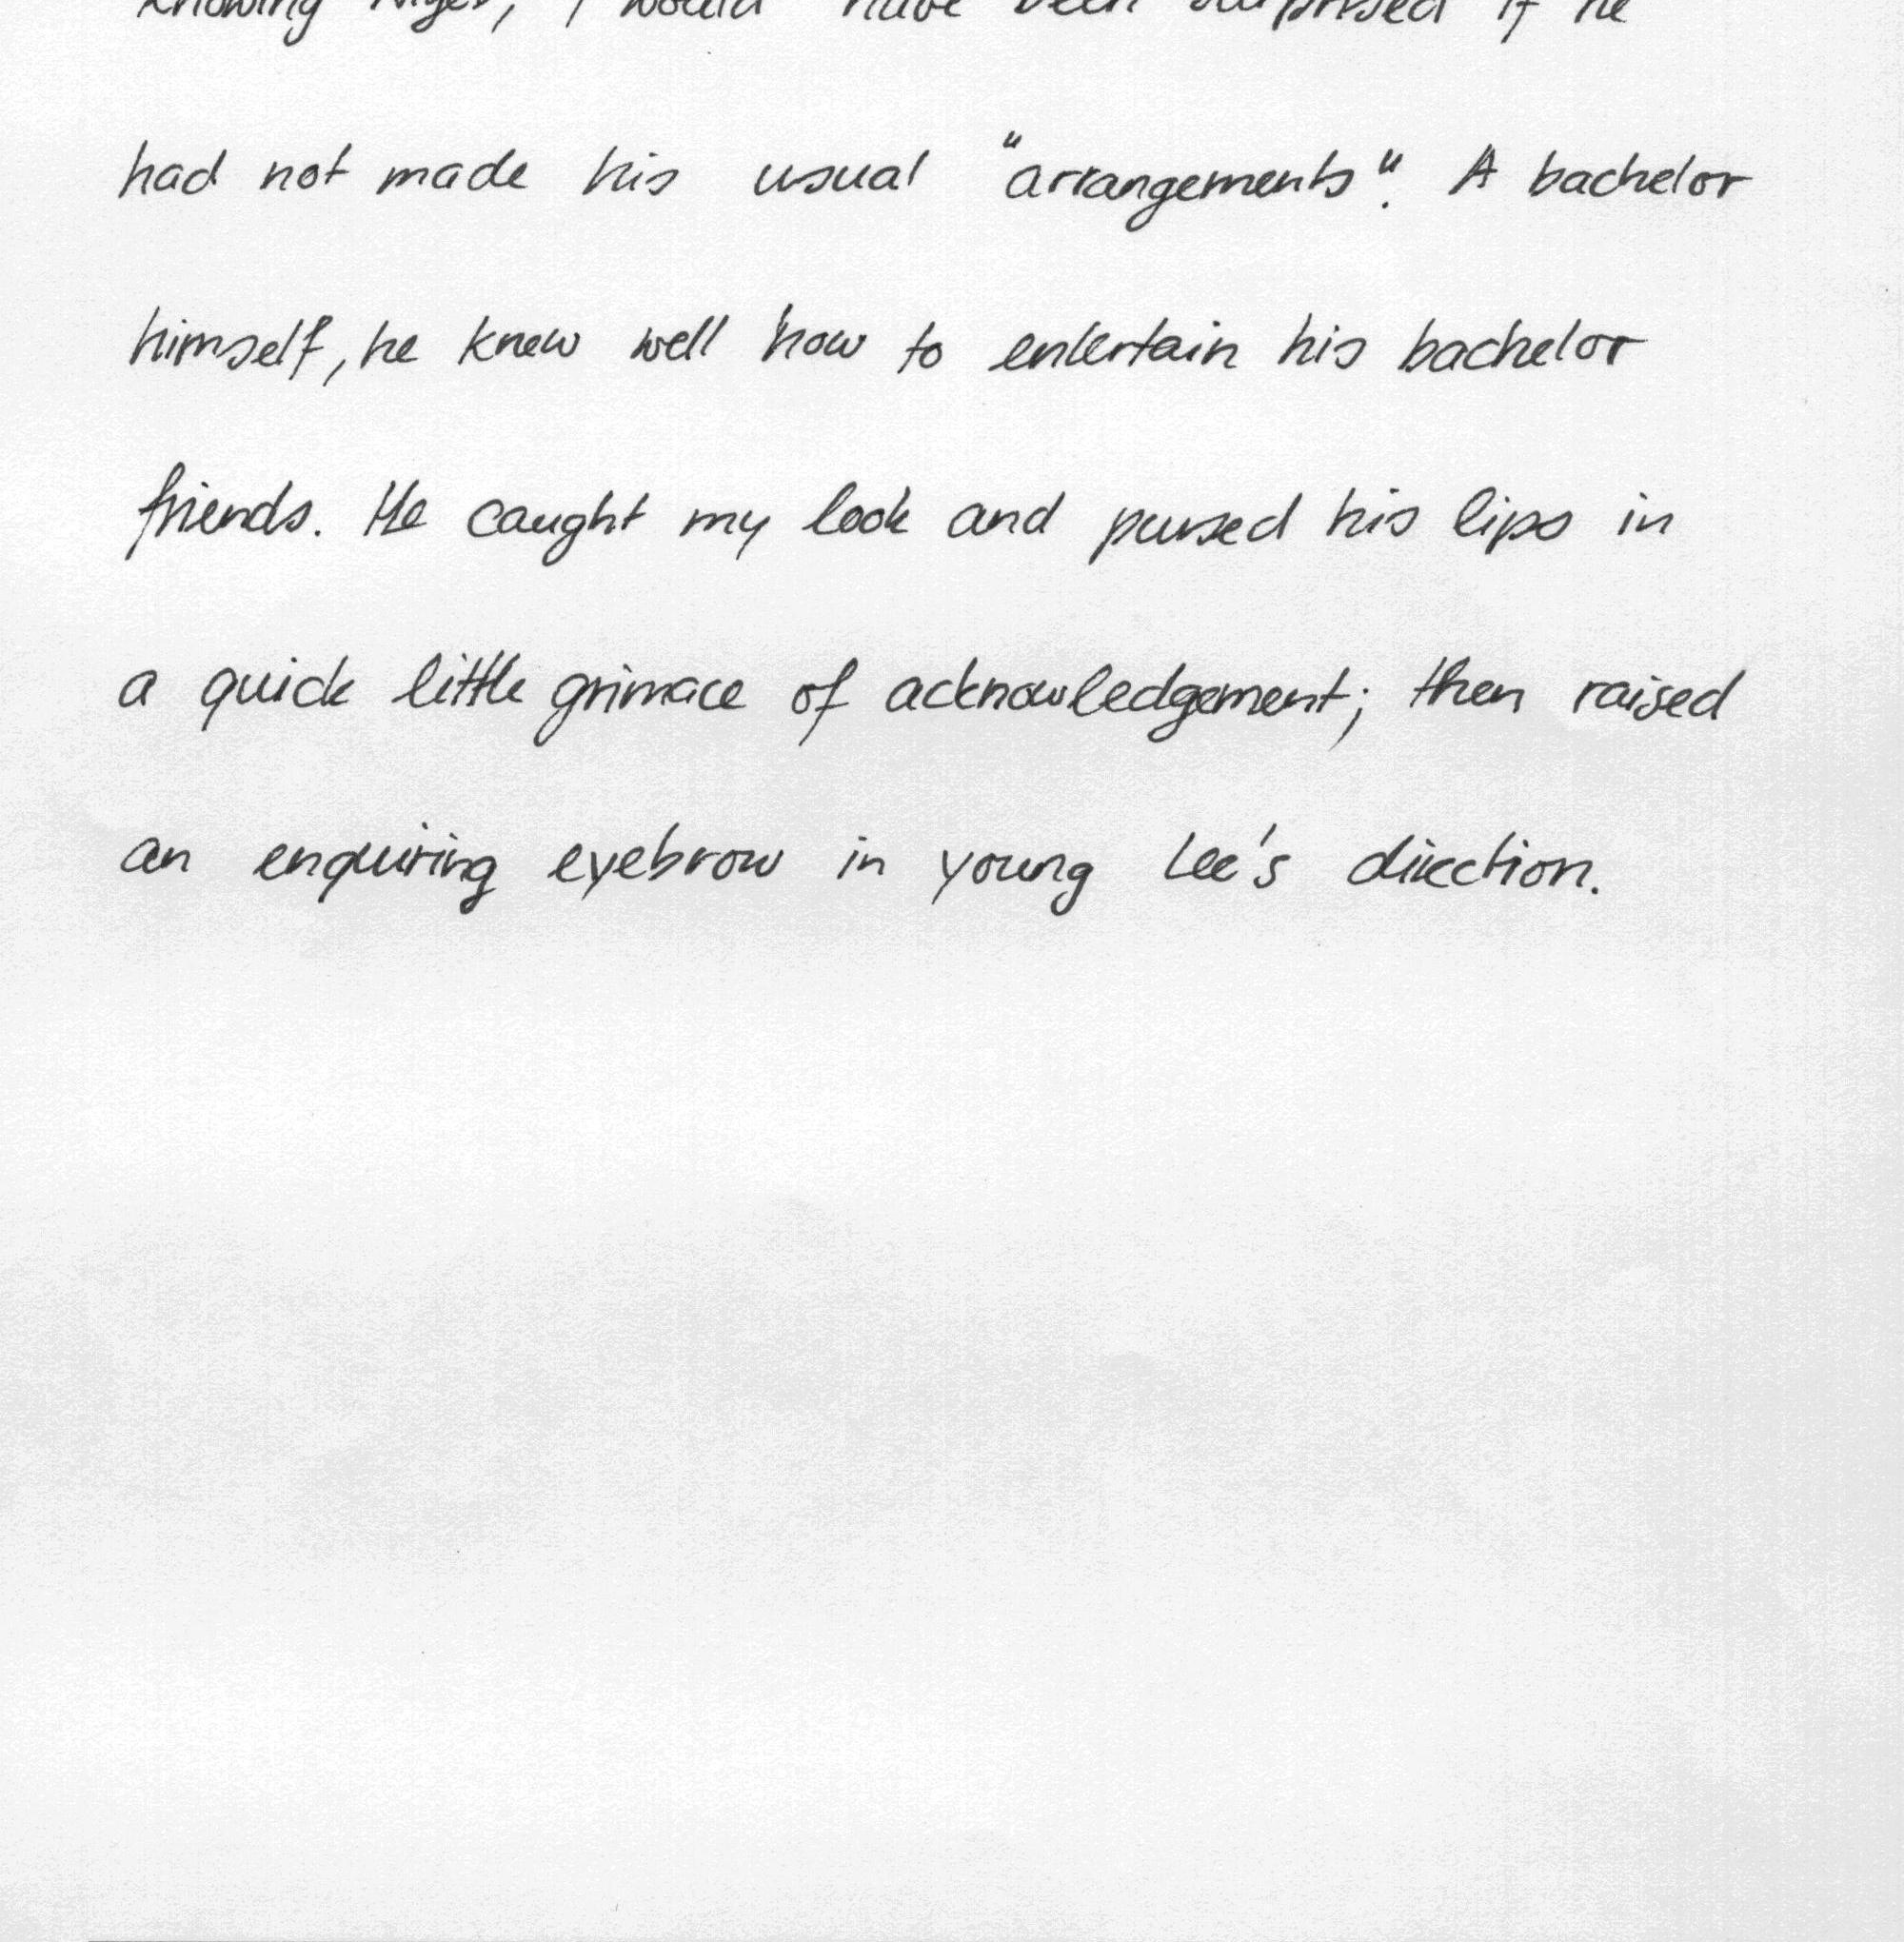 knowing Nigel, I would have been surprised if he
had not made his usual "arrangements". A bachelor
himself, he knew well how to entertain his bachelor
friends. He caught my look and pursed his lips in
a quick little grimace of acknowledgement; then raised
an enquiring eyebrow in young Lee's direction.